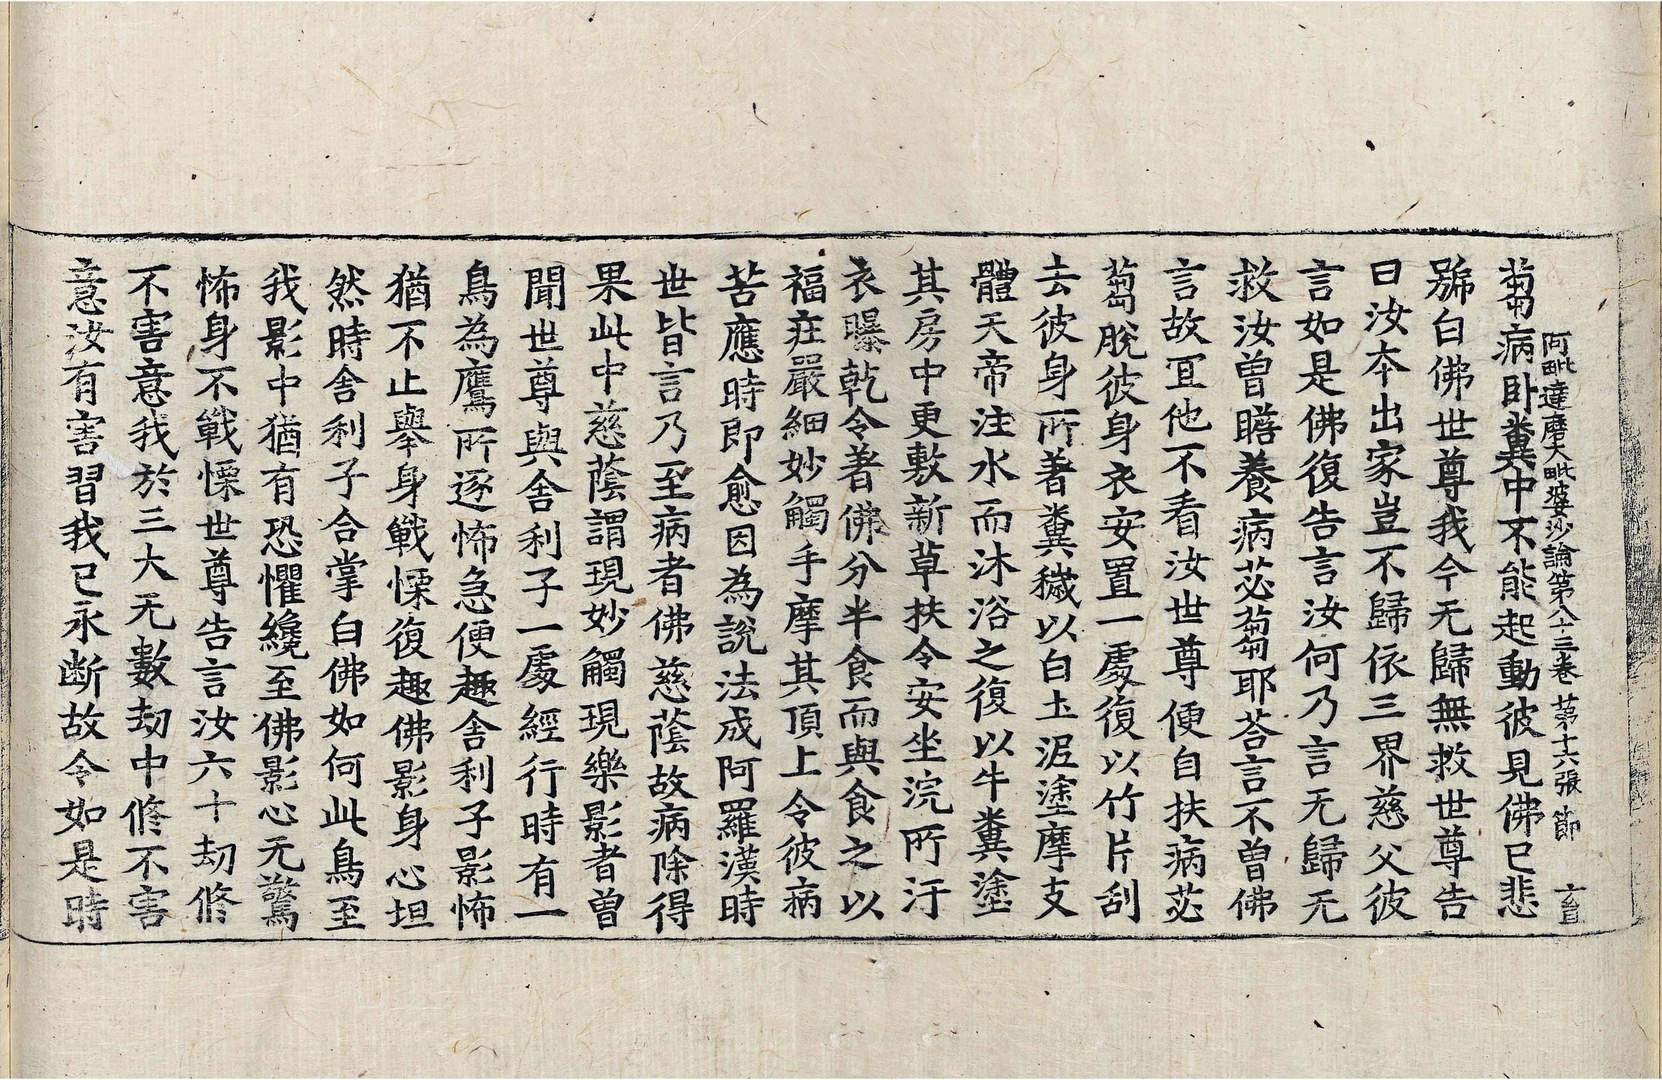 阿毗達磨大毗婆沙論第八十三卷 第十六張 節 育
蒭病卧糞中不能起動彼見佛已悲
號白佛世尊我今无歸無救世尊告
曰汝本出家豈不歸依三界慈父彼
言如是佛復告言汝何乃言无歸无
救汝曾瞻養病苾蒭耶荅言不曾佛
言故冝他不看汝世尊便自扶病苾
蒭脫彼身衣安置一處復以竹片刮
去彼身所著糞穢以白土泥塗摩支
體天帝注水而沐浴之復以牛糞塗
其房中更敷新草扶令安坐浣所汙
衣曝乾令著佛分半食而與食之以
福庄嚴細妙觸手摩其頂上令彼病
苦應時即愈因為說法成阿羅漢時
世皆言乃至病者佛慈蔭故病除得
果此中慈蔭謂現妙觸現樂影者曾
聞世尊與舍利子一處經行時有一
鳥為鷹所逐怖急便趣舍利子影怖
猶不止舉身戰慄復趣佛影身心坦
然時舍利子合掌白佛如何此鳥至
我影中猶有恐懼纔至佛影心无驚
怖身不戰慄世尊告言汝六十劫修
不害意我於三大无數劫中修不害
意汝有害習我已永断故令如是時